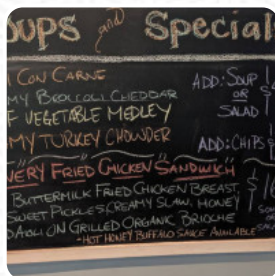 OUPS and Special
I CON CARNE
ADD: SOUP
OR
SALAD
MY BROCCOLI CHEDDAR
F VEGETABLE MEDLEY
MY TURKEY CHOWDER
ADD: CHIPS
VERY FRIED CHICKEN SANDWICH"
BUTTERMILK FRIED CHICKEN BREAST,
SWEET PICKLES, CREAMY SLAW, HONEY
D AIOLI ON GRILLED ORGANIC BRIOCHE
-HOT HONEY BUFFALO SAUCE AVAILABLE